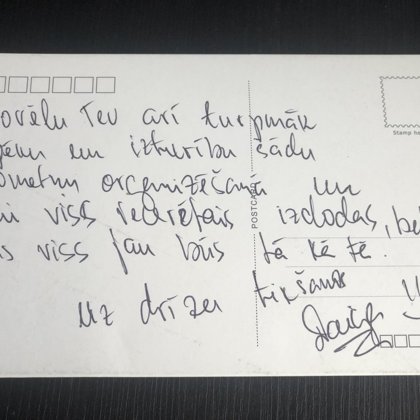 ovēlu Tev arī turpmāk
un izturību šādu
ometņu organizēšanā un
viss iecerētais izdodas, be
s viss jau būs tā kā tē.
Uz drīzu tikšanos
POSTCARD
Stamp he